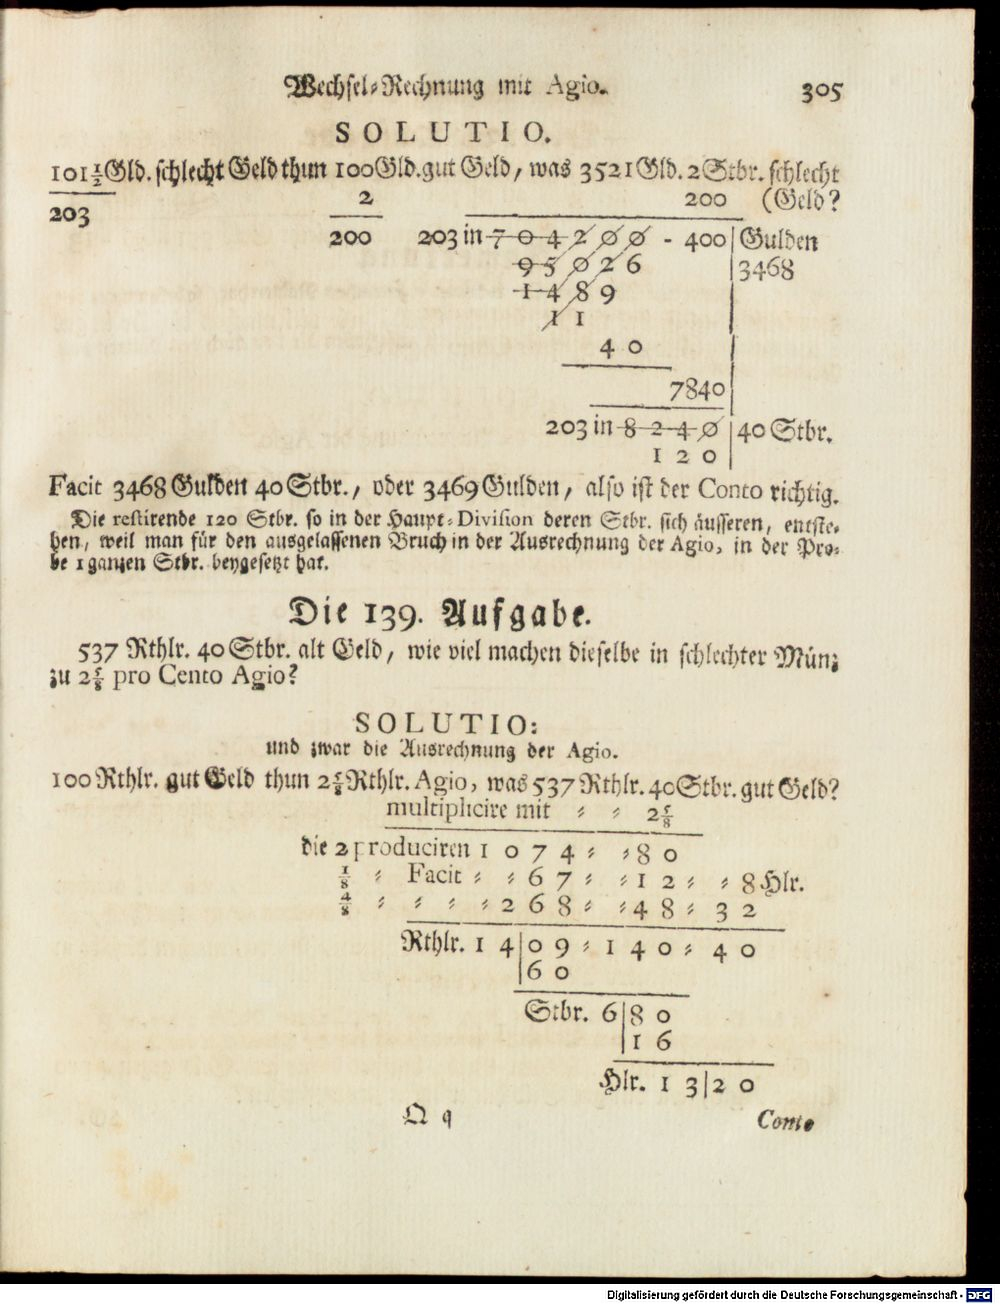 Wechsel-Rechnung mit Agio. 305
SOLUTIO.
101½ Gld. schlecht Geld thun 100 Gld. gut Geld, was 3521 Gld. 2 Stbr. schlecht
203 2 200 (Geld?
200 203 in 7 0 4 2 0 0 - 400 | Gulden
9 5 0 2 6 | 3468
1 4 8 9
1 1
4 0
7840
203 in 8 2 4 0 | 40 Stbr.
1 2 0
Facit 3468 Gulden 40 Stbr., oder 3469 Gulden, also ist der Conto richtig.
Die restirende 120 Stbr. so in der Haupt-Division deren Stbr. sich äusseren, entste-
hen, weil man für den ausgelassenen Bruch in der Ausrechnung der Agio, in der Pro-
be 1 ganzen Stbr. beygesetzt hat.
Die 139. Aufgabe.
537 Rthlr. 40 Stbr. alt Geld, wie viel machen dieselbe in schlechter Münz
zu 2⅝ pro Cento Agio?
SOLUTIO:
und zwar die Ausrechnung der Agio.
100 Rthlr. gut Geld thun 2⅝ Rthlr. Agio, was 537 Rthlr. 40 Stbr. gut Geld?
multiplicire mit = = 2⅝
die 2 produciren 1 0 7 4 = = 8 0
⅛ = Facit = = 6 7 = = 1 2 = = 8 Hlr.
4/8 = = = = 2 6 8 = = 4 8 = 3 2
Rthlr. 1 4 | 0 9 = 1 4 0 = 4 0
6 0
Stbr. 6 | 8 0
1 6
Hlr. 1 3 | 2 0
Q q Conto
Digitalisierung gefördert durch die Deutsche Forschungsgemeinschaft - DFG